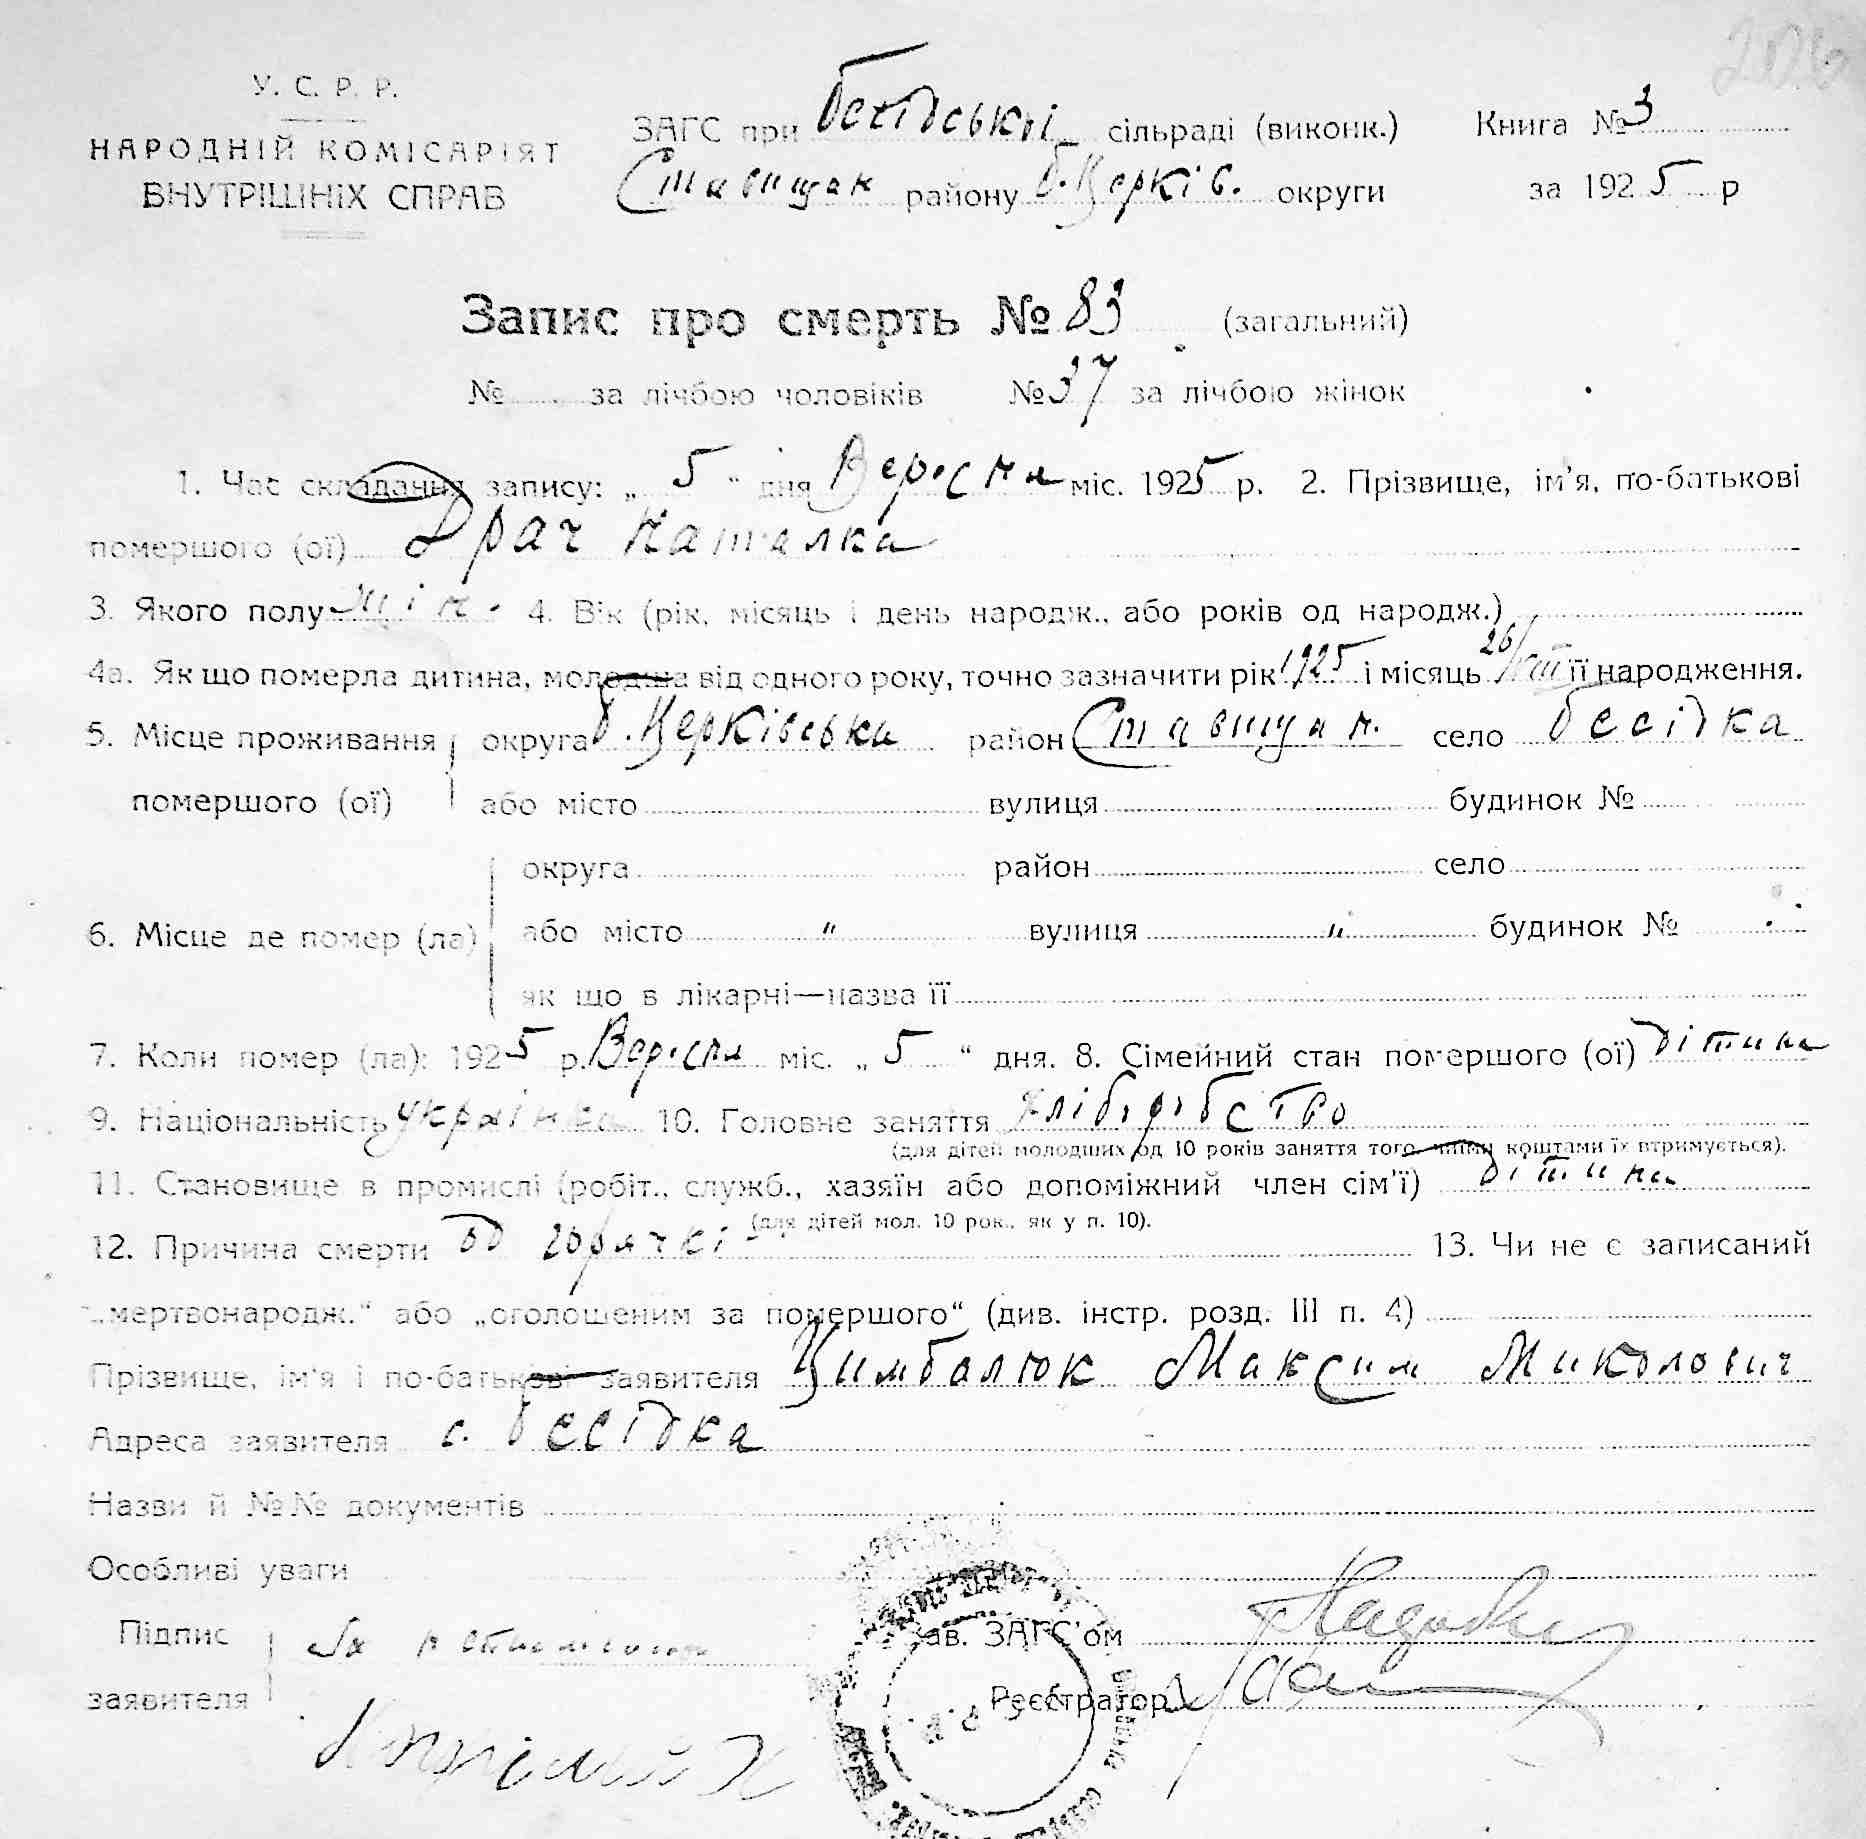 206
У. С. Р. Р.
НАРОДНІЙ КОМІСАРІЯТ
ВНУТРІШНІХ СПРАВ
ЗАГС при Бесідській сільраді (виконк.) Книга № 3
Ставищан району Б. Церків. округи за 1925 р
Запис про смерть № 83 (загальний)
№ за лічбою чоловіків № 37 за лічбою жінок
1. Час складання запису: „ 5 “ дня Вересня міс. 1925 р. 2. Прізвище, ім'я, по-батькові
помершого (ої) Драч Наталка
3. Якого полу жін. 4. Вік (рік, місяць і день народж., або років од народж.)
4а. Як що померла дитина, молодша від одного року, точно зазначити рік 1925 і місяць 26/VIII її народження.
5. Місце проживання округа Б. Церківська район Ставищан. село Бесідка
помершого (ої) або місто вулиця будинок №
округа район село
6. Місце де помер (ла) або місто " вулиця " будинок №
як що в лікарні—назва її
7. Коли помер (ла): 1925 р. Вересня міс. „ 5 “ дня. 8. Сімейний стан помершого (ої) дітина
9. Національність українка 10. Головне заняття хліборобство
(для дітей молодших од 10 років заняття того, чиїми коштами їх втримується).
11. Становище в промислі (робіт., служб., хазяїн або допоміжний член сім'ї) дітина
(для дітей мол. 10 рок., як у п. 10).
12. Причина смерти од горячкі 13. Чи не є записаний
„мертвонародж.“ або „оголошеним за помершого“ (див. інстр. розд. III п. 4)
Прізвище, ім'я і по-батькові заявителя Цимбалюк Максим Миколович
Адреса заявителя с. Бесідка
Назви й №№ документів
Особливі уваги
Підпис За
заявителя
Зав. ЗАГС'ом
Реєстратор